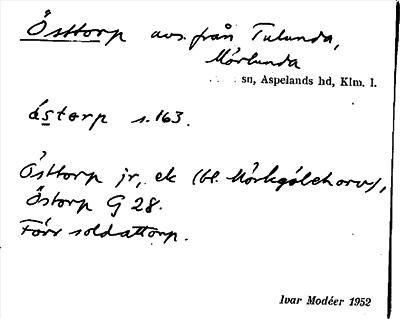 Östtorp avs. från Tulunda,
Mörlunda
sn, Aspelands hd, Klm. l.
åstorp s. 163.
Östtorp jr, ek (bl. Mörkgölehorva),
Östorp G 28.
Förr soldattorp.
Ivar Modéer 1952